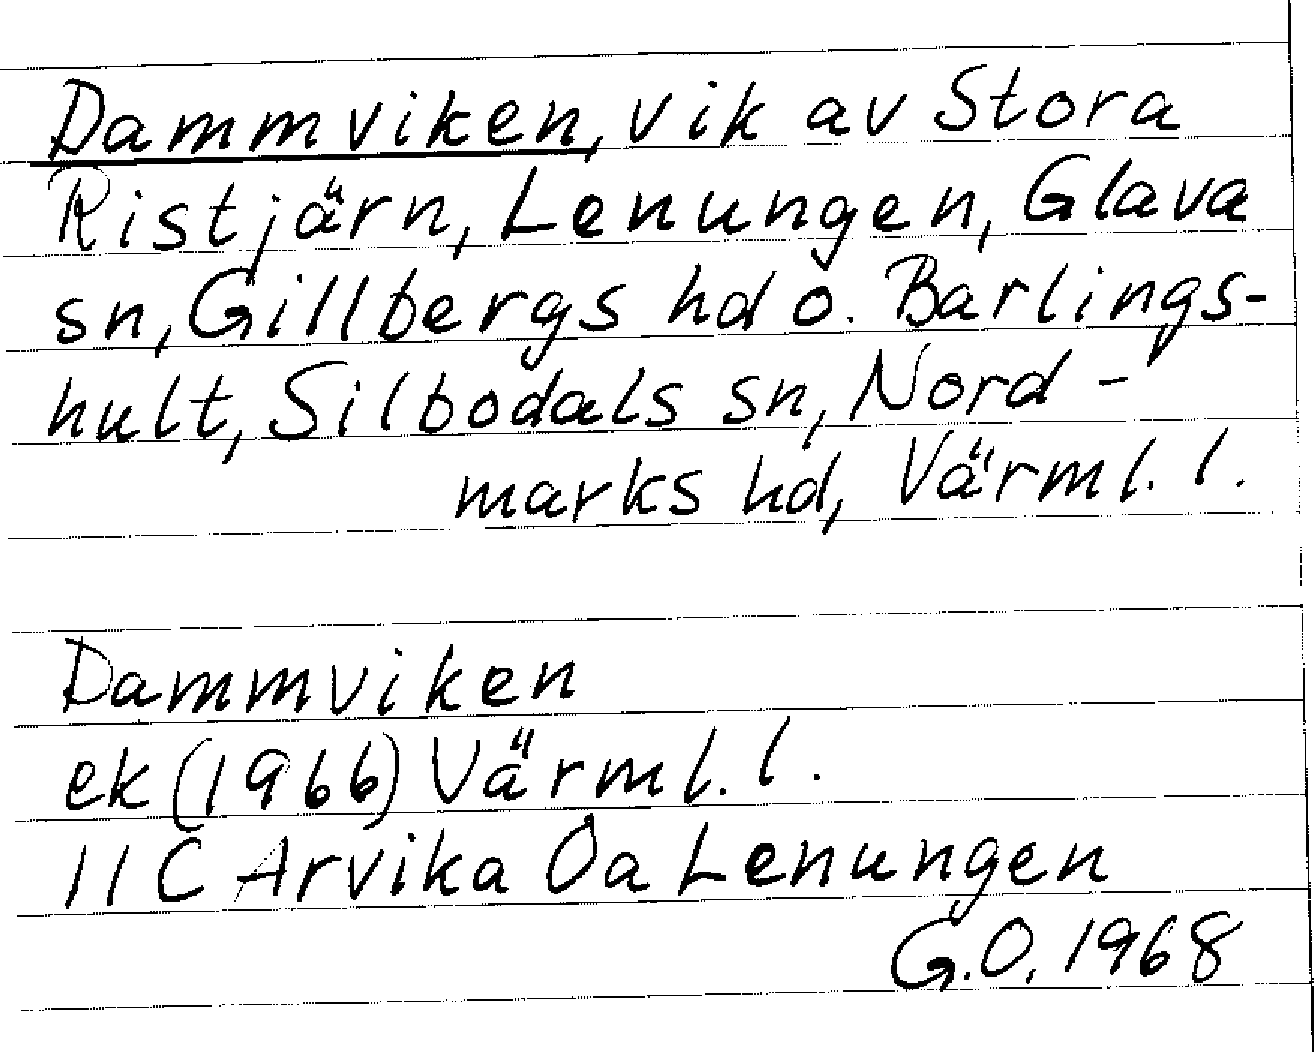 Dammviken, vik av Stora
Ristjärn, Lenungen, Glava
sn, Gillbergs hd o. Barlings-
hult, Silbodals sn, Nord-
marks hd, Värml. l.
Dammviken
ek (1966) Värml. l.
11C Arvika 0a Lenungen
G.O. 1968